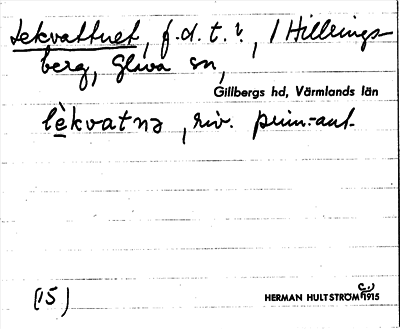 Lekvattnet, f.d.t.?, 1 Hillrings-
berg, Glava sn,
Gillbergs hd, Värmlands län
lèkvatnə, riv. prim.-ant.
(15)
HERMAN HULTSTRÖM (C.) 1915